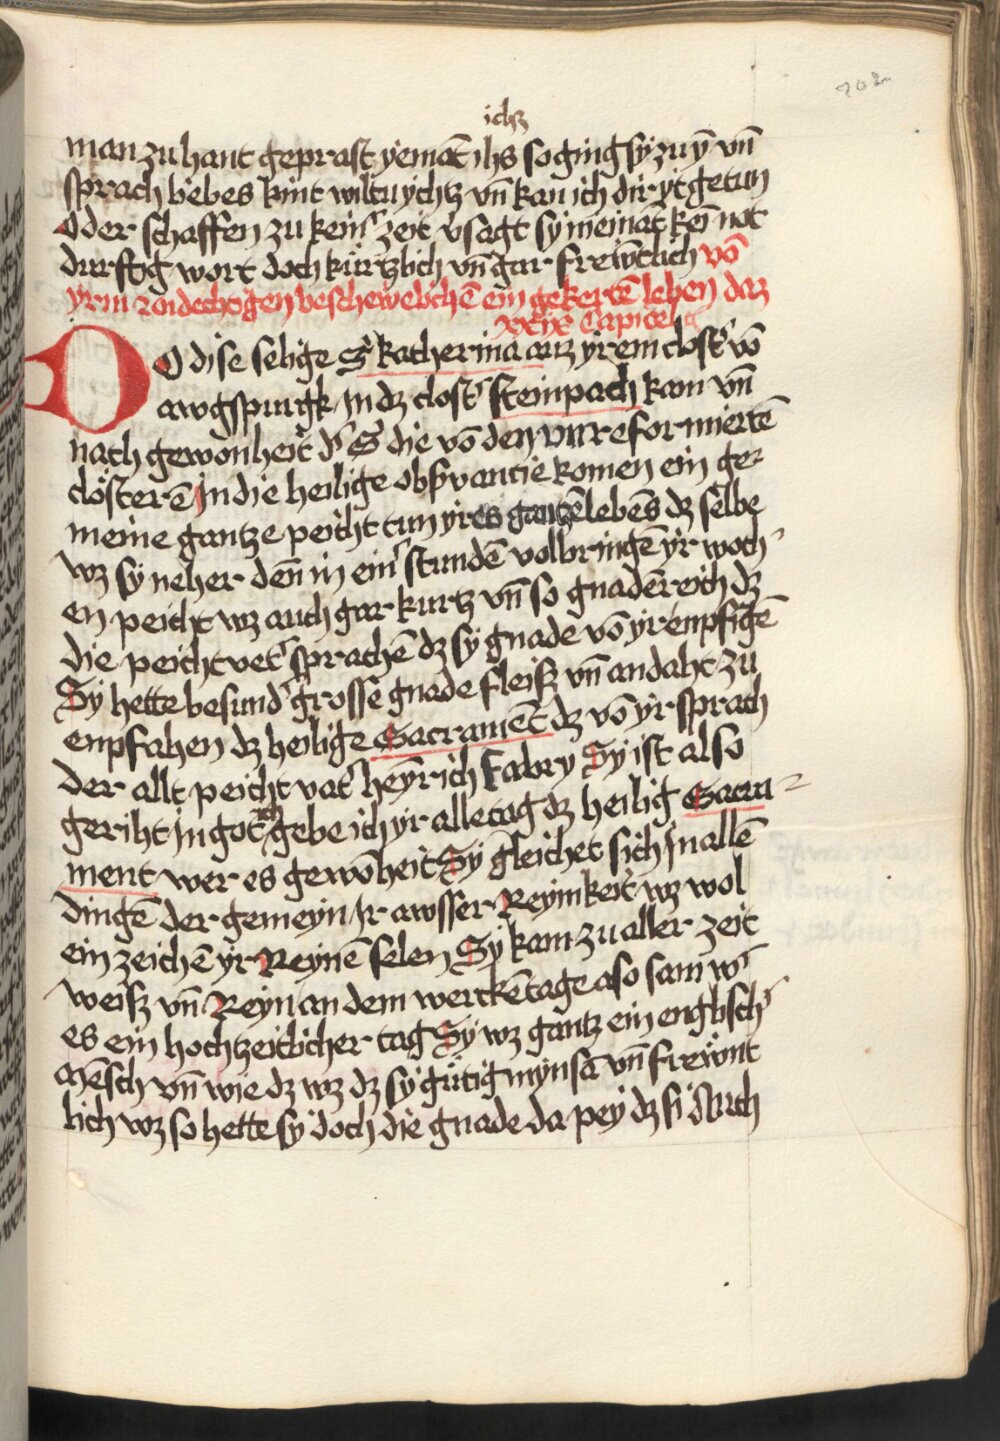 202
ichß
man zu hant geprast yemāt ihs so ging sy zu ȳ vn̄
sprach liebes kint wiltu ychtz vn̄ kan ich dir yt getun
Oder schaffen zu kein' zeit v'sagt sy niemāt kei not
durftig wort doch kürtzlich vn̄ gar frewtlich vō
yrm andechtigen beschewelichē ein gekertē leben daz
xxix Capitel
DO dise selige S' katherina auz yrem clost' vō
awgspurgk / In dz clost' steinpach kam vn̄
nach gewonheit d' S' die vō den vnreformiertē
clöstern̄ In die heilige obs'vantie komen ein ge⸗
meine gantze peicht tun yres gantzē lebēs dz selbe
wz sy neher den̄ in ein' stundē volbringē yr woch
en peicht wz auch gar kurtz vn̄ so gnadēreich dz
die peichtvet' sprachē dz sy gnade vō yr enpfigē
Sy hette besund' grosse gnade fleiß vn̄ andaht zu
enpfahen dz heilige Sacramēt dz vō yr sprach
der allt peicht vat' heyrich fabry Sy ist also
geriht In got ich gebe ich yr alle tag dz heilig Sacra⸗
ment wer es gewōheit Sy gleichet sich In allē
dingē der gemeyn Ir awsser Reynikeit wz wol
ein zeichē yr Reynē selen Sy kam zu aller zeit
weiß vn̄ Reyn an dem werckētage also sam w'
es ein hochzeitlicher tag Sy wz gantz ein englisch'
mēsch vn̄ wie dz wz dz sy gütig mynsā vn̄ frewnt
lich wz so hette sy doch die gnade da pey dz si durch